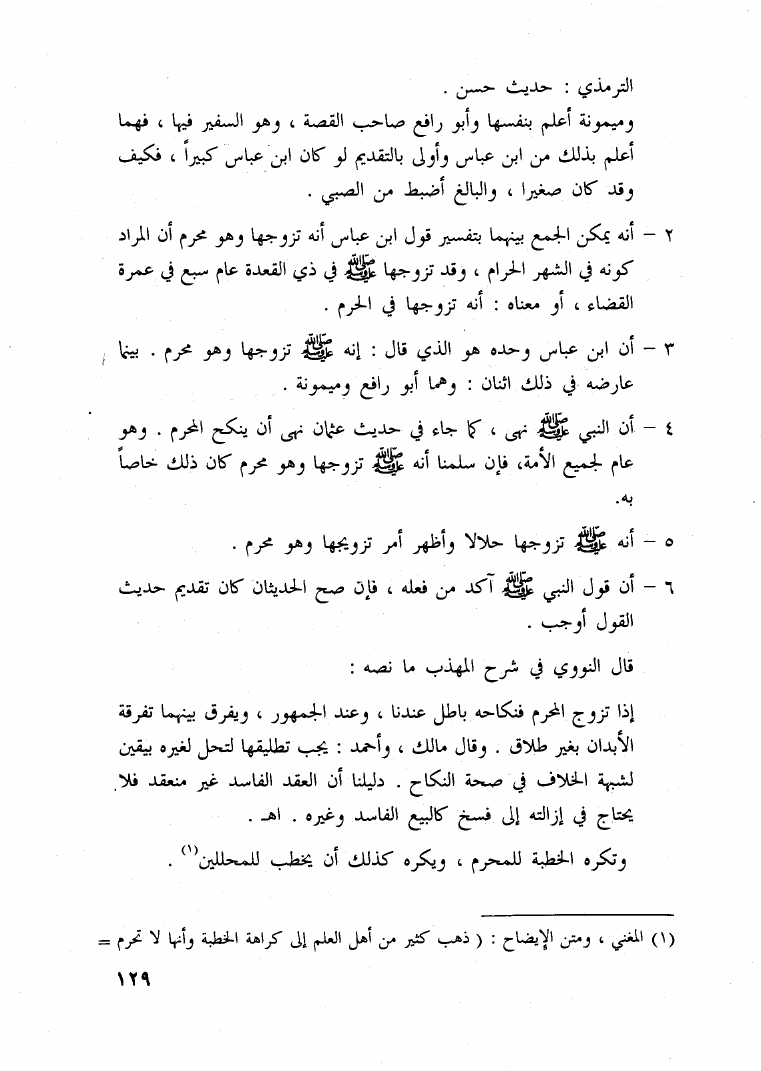 الترمذي : حديث حسن .
وميمونة أعلم بنفسها وأبو رافع صاحب القصة ، وهو السفير فيها ، فهما
أعلم بذلك من ابن عباس وأولى بالتقديم لو كان ابن عباس كبيراً ، فكيف
وقد كان صغيرا ، والبالغ أضبط من الصبي .
٢ – أنه يمكن الجمع بينهما بتفسير قول ابن عباس أنه تزوجها وهو محرم أن المراد
كونه في الشهر الحرام ، وقد تزوجها ﷺ في ذي القعدة عام سبع في عمرة
القضاء ، أو معناه : أنه تزوجها في الحرم .
٣ – أن ابن عباس وحده هو الذي قال : إنه ﷺ تزوجها وهو محرم . بينما
عارضه في ذلك اثنان : وهما أبو رافع وميمونة .
٤ – أن النبي ﷺ نهى ، كما جاء في حديث عثمان نهى أن ينكح المحرم . وهو
عام لجميع الأمة، فإن سلمنا أنه ﷺ تزوجها وهو محرم كان ذلك خاصاً
به.
٥ – أنه ﷺ تزوجها حلالا وأظهر أمر تزويجها وهو محرم .
٦ – أن قول النبي ﷺ آكد من فعله ، فإن صح الحديثان كان تقديم حديث
القول أوجب .
قال النووي في شرح المهذب ما نصه :
إذا تزوج المحرم فنكاحه باطل عندنا ، وعند الجمهور ، ويفرق بينهما تفرقة
الأبدان بغير طلاق . وقال مالك ، وأحمد : يجب تطليقها لتحل لغيره بيقين
لشبهة الخلاف في صحة النكاح . دليلنا أن العقد الفاسد غير منعقد فلا
يحتاج في إزالته إلى فسخ كالبيع الفاسد وغيره . اهـ .
وتكره الخطبة للمحرم ، ويكره كذلك أن يخطب للمحللين(١) .
(١) المغني ، ومتن الإيضاح : ( ذهب كثير من أهل العلم إلى كراهة الخطبة وأنها لا تحرم =
١٢٩